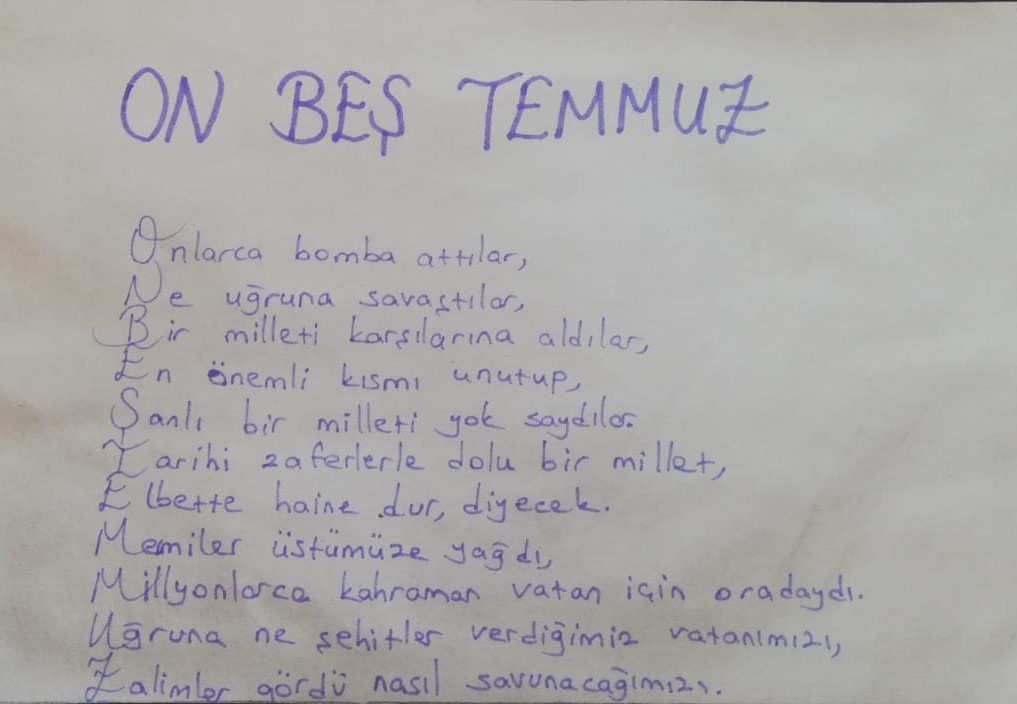 ON BEŞ TEMMUZ
Onlarca bomba attılar,
Ne uğruna savaştılar,
Bir milleti karşılarına aldılar,
En önemli kısmı unutup,
Şanlı bir milleti yok saydılar.
Tarihi zaferlerle dolu bir millet,
Elbette haine dur, diyecek.
Memiler üstümüze yağdı,
Millyonlarca kahraman vatan için oradaydı.
Uğruna ne şehitler verdiğimiz vatanımızı,
Zalimler gördü nasıl savunacağımızı.